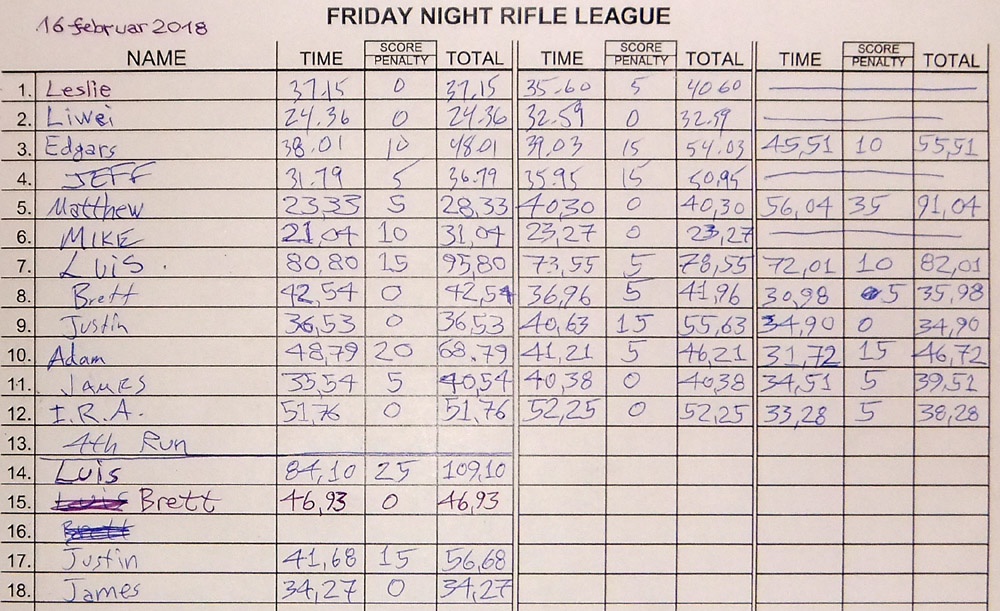 16 februar 2018
FRIDAY NIGHT RIFLE LEAGUE
NAME TIME SCORE PENALTY TOTAL TIME SCORE PENALTY TOTAL TIME SCORE PENALTY TOTAL
1. Leslie 37.15 0 37.15 35.60 5 40.60
2. Liwei 24.36 0 24.36 32.59 0 32.59
3. Edgars 38.01 10 48.01 39.03 15 54.03 45,51 10 55,51
4. JEFF 31.79 5 36.79 35.95 15 50,95
5. Matthew 23,33 5 28,33 40,30 0 40,30 56,04 35 91,04
6. MIKE 21,04 10 31,04 23,27 0 23,27
7. LUIS 80,80 15 95,80 73,55 5 78,55 72,01 10 82,01
8. Brett 42,54 0 42,54 36,96 5 41,96 30,98 5 35,98
9. Justin 36,53 0 36,53 40,63 15 55,63 34,90 0 34,90
10. Adam 48,79 20 68.79 41,21 5 46,21 31,72 15 46,72
11. James 35,54 5 40,54 40,38 0 40,38 34,51 5 39,51
12. I.R.A. 51,76 0 51,76 52,25 0 52,25 33,28 5 38,28
13. 4th Run
14. Luis 84,10 25 109,10
15. Luis Brett 46,93 0 46,93
16. Brett
17. Justin 41,68 15 56,68
18. James 34,27 0 34,27